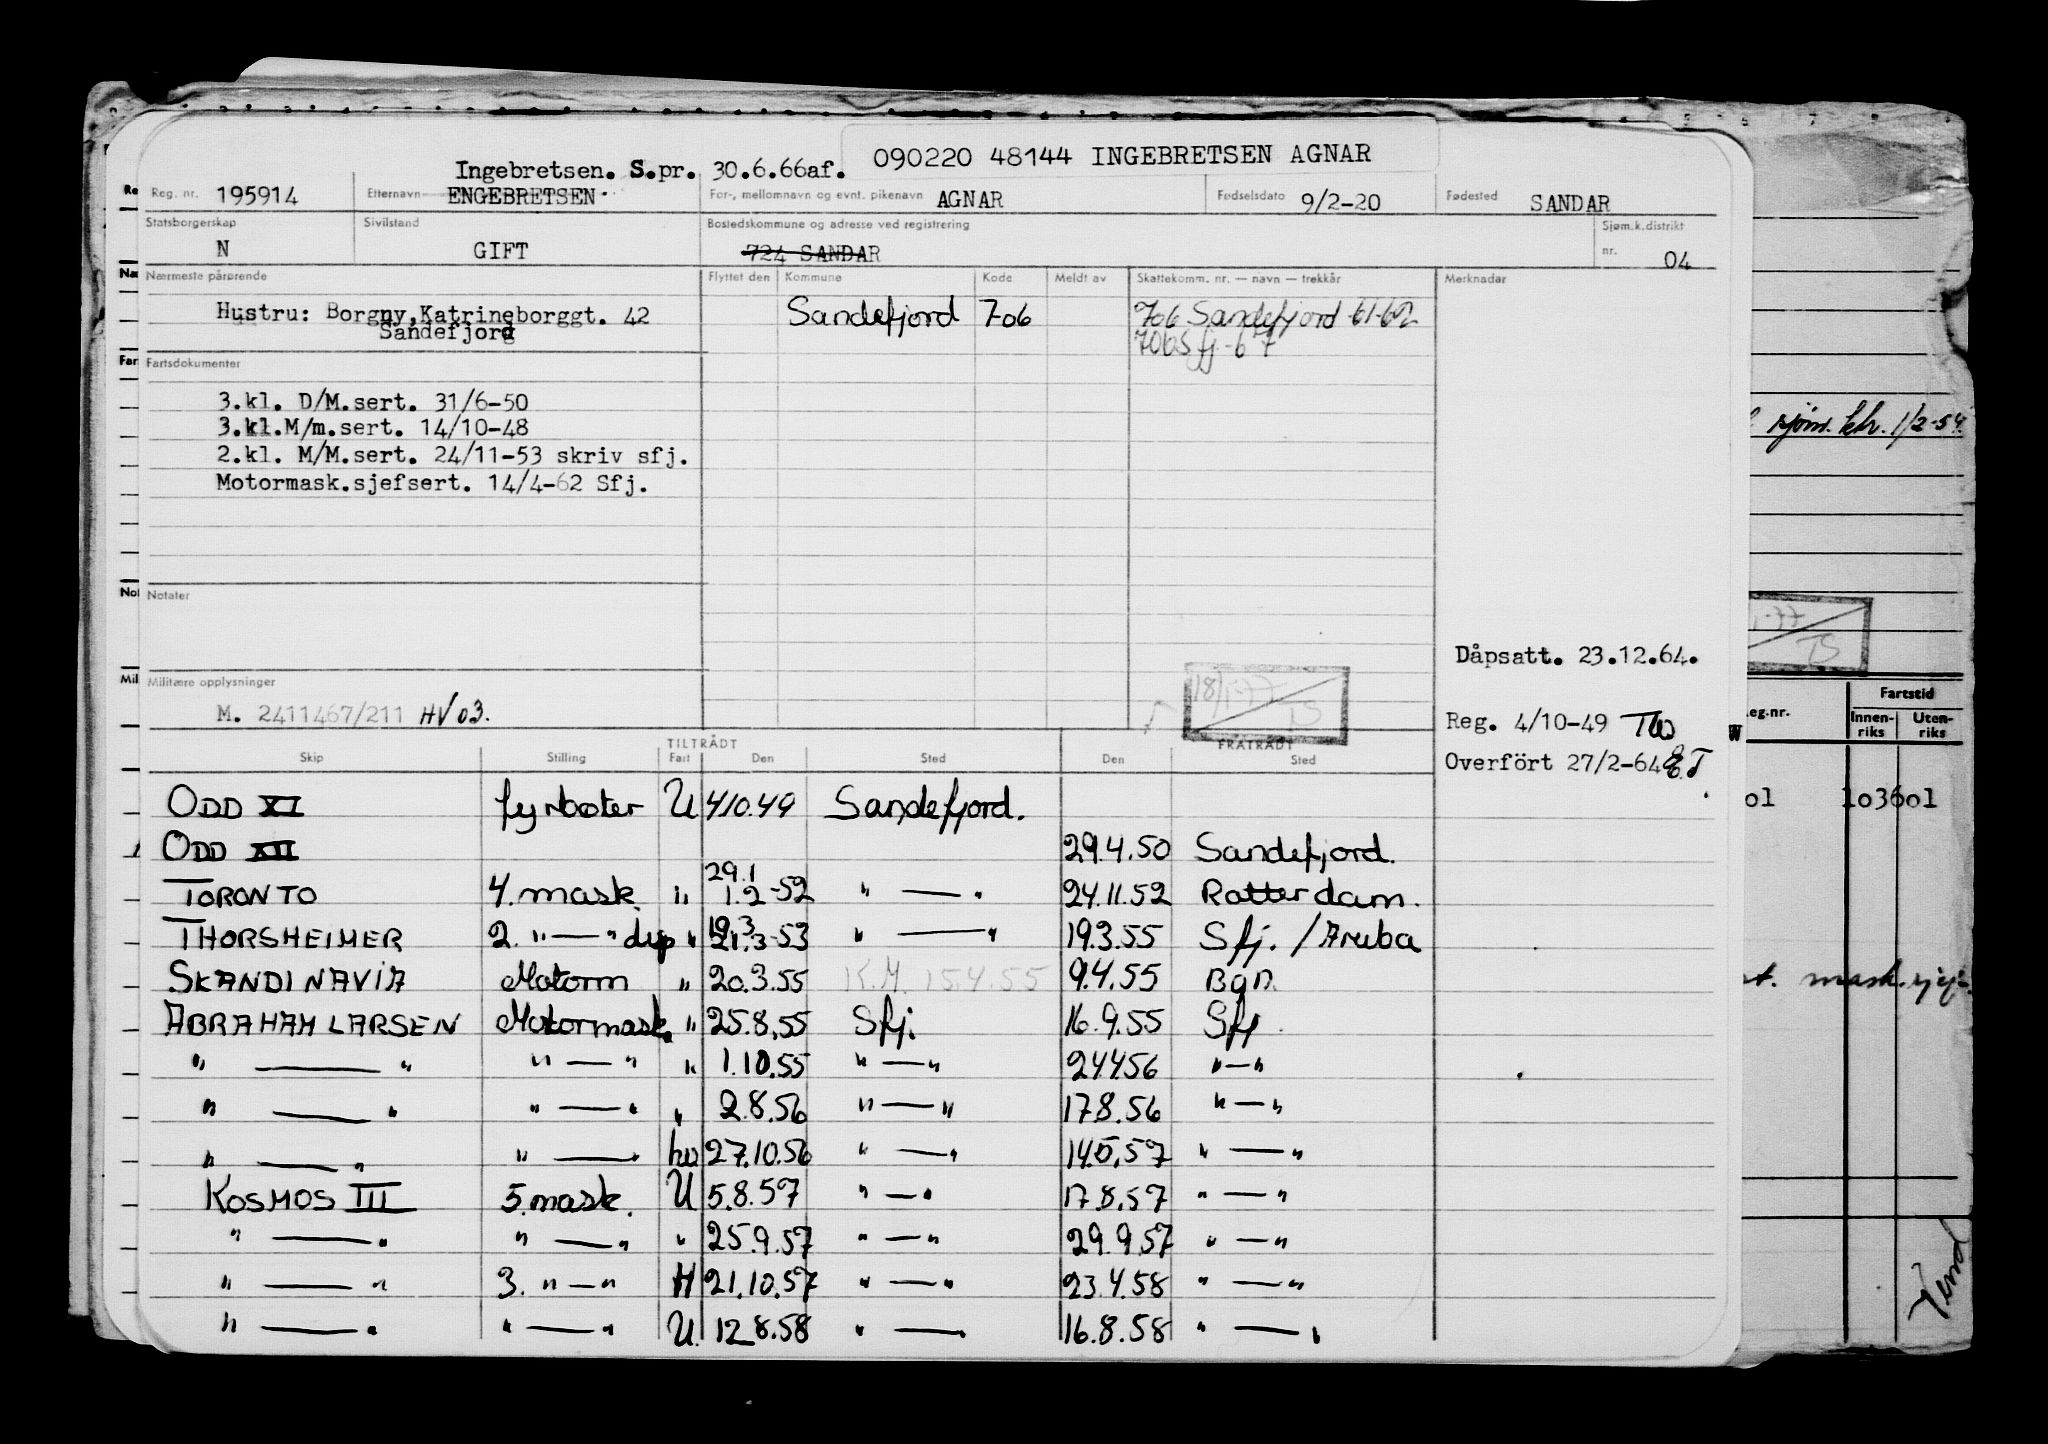 090220 48144 INGEBRETSEN AGNAR
Ingebretsen. S.pr. 30.6.66af.
Reg. nr. 195914 Etternavn ENGEBRETSEN For-, mellomnavn og evnt. pikenavn AGNAR Fødselsdato 9/2-20 Fødested SANDAR
Statsborgerskap Sivilstand Bostedskommune og adresse ved registrering Sjøm.k.distrikt
N GIFT 724 SANDAR nr. 04
Nærmeste pårørende Flyttet den Kommune Kode Meldt av Skattekomm. nr. — navn — trekkår Merknadar
Hustru: Borgny, Katrineborggt. 42 Sandefjord 706 706 Sandefjord 61-62
Sandefjord 706 Sfj-67
Fartsdokumenter
3.kl. D/M.sert. 31/6-50
3.kl.M/m.sert. 14/10-48
2.kl. M/M.sert. 24/11-53 skriv sfj.
Motormask.sjefsert. 14/4-62 Sfj.
Notater
Dåpsatt. 23.12.64.
Militære opplysninger
M. 2411467/211 HV 03.
18/1-77
TS
Reg. 4/10-49
Overfört 27/2-64 E.T
TILTRÅDT FRATRÅDT
Skip Stilling Fart Den Sted Den Sted
ODD XI fyrbøter U 4/10.49 Sandefjord.
ODD XII 29.4.50 Sandefjord.
29.1
TORONTO 4. mask. " 1.2-52 " — " 24.11.52 Rotterdam.
19.3
THORSHEIMER 2. " — " disp " 21.3-53 " — " 19.3.55 Sfj. / Aruba
SKANDINAVIA Motorm " 20.3.55 K.M. 15.4.55 9.4.55 Bgn.
ABRAHAM LARSEN Motormask. " 25.8.55 Sfj. 16.9.55 Sfj.
" — " " — " " 1.10.55 " — " 24.4.56 " — "
" — " " — " " 2.8.56 " — " 17.8.56 " — "
" — " " — " hv 27.10.56 " — " 14.5.57 " — "
KOSMOS III 5. mask. U 5.8.57 " — " 17.8.57 " — "
" — " " — " " 25.9.57 " — " 29.9.57 " — "
" — " 3. " — " H 21.10.57 " — " 23.4.58 " — "
" — " " — " U. 12.8.58 " — " 16.8.58 " — "
sjøm. ktr. 1/2-54.
-77
TS
eg.nr. Fartstid
Innen-riks Uten-riks
ol 1o36ol
mask.sjef